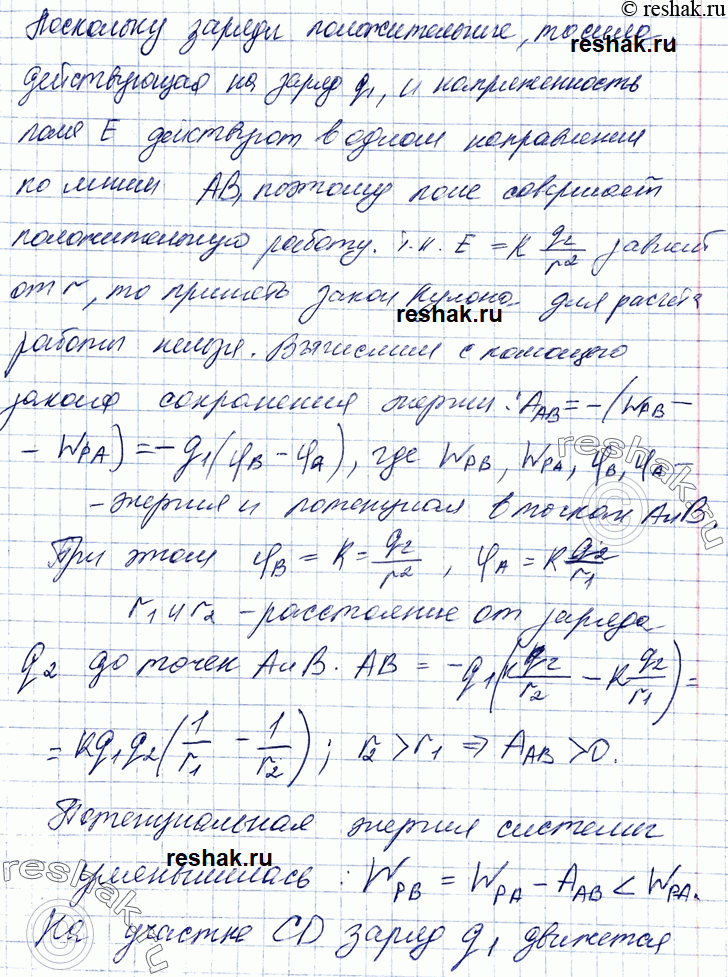 © reshak.ru
Поскольку заряды положительные, то сила
reshak.ru
действующая на заряд q₁, и напряженность
поля E действуют в одном направлении
по линии AB, поэтому поле совершает
положительную работу. Т.к. E = K q₂/r² зависит
от r, то применять закон Кулона для расчета
reshak.ru
работы нельзя. Вычислим с помощью
закона сохранения энергии: A_AB = -(W_PB -
- W_PA) = -q₁(φ_B - φ_A), где W_PB, W_PA, φ_B, φ_A -
- энергия и потенциал в точках A и B.
При этом φ_B = K = q₂/r₂, φ_A = K q₂/r₁
r₁ и r₂ - расстояние от заряда
q₂ до точек A и B. AB = -q₁(K q₂/r₂ - K q₂/r₁) =
= Kq₁q₂(1/r₁ - 1/r₂); r₂ > r₁ ⇒ A_AB > 0.
Потенциальная энергия системы
reshak.ru
уменьшилась: W_PB = W_PA - A_AB < W_PA.
На участке CD заряд q₁ движется